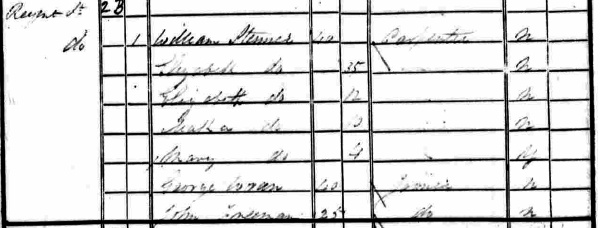 Regent St 2 B
do 1 William Stenner 40 Carpenter N
Elizabeth do 35 N
Elizabeth do 12 N
do 10 N
Mary do 4 Y
George 40 Joiner N
John Freeman 25 do N